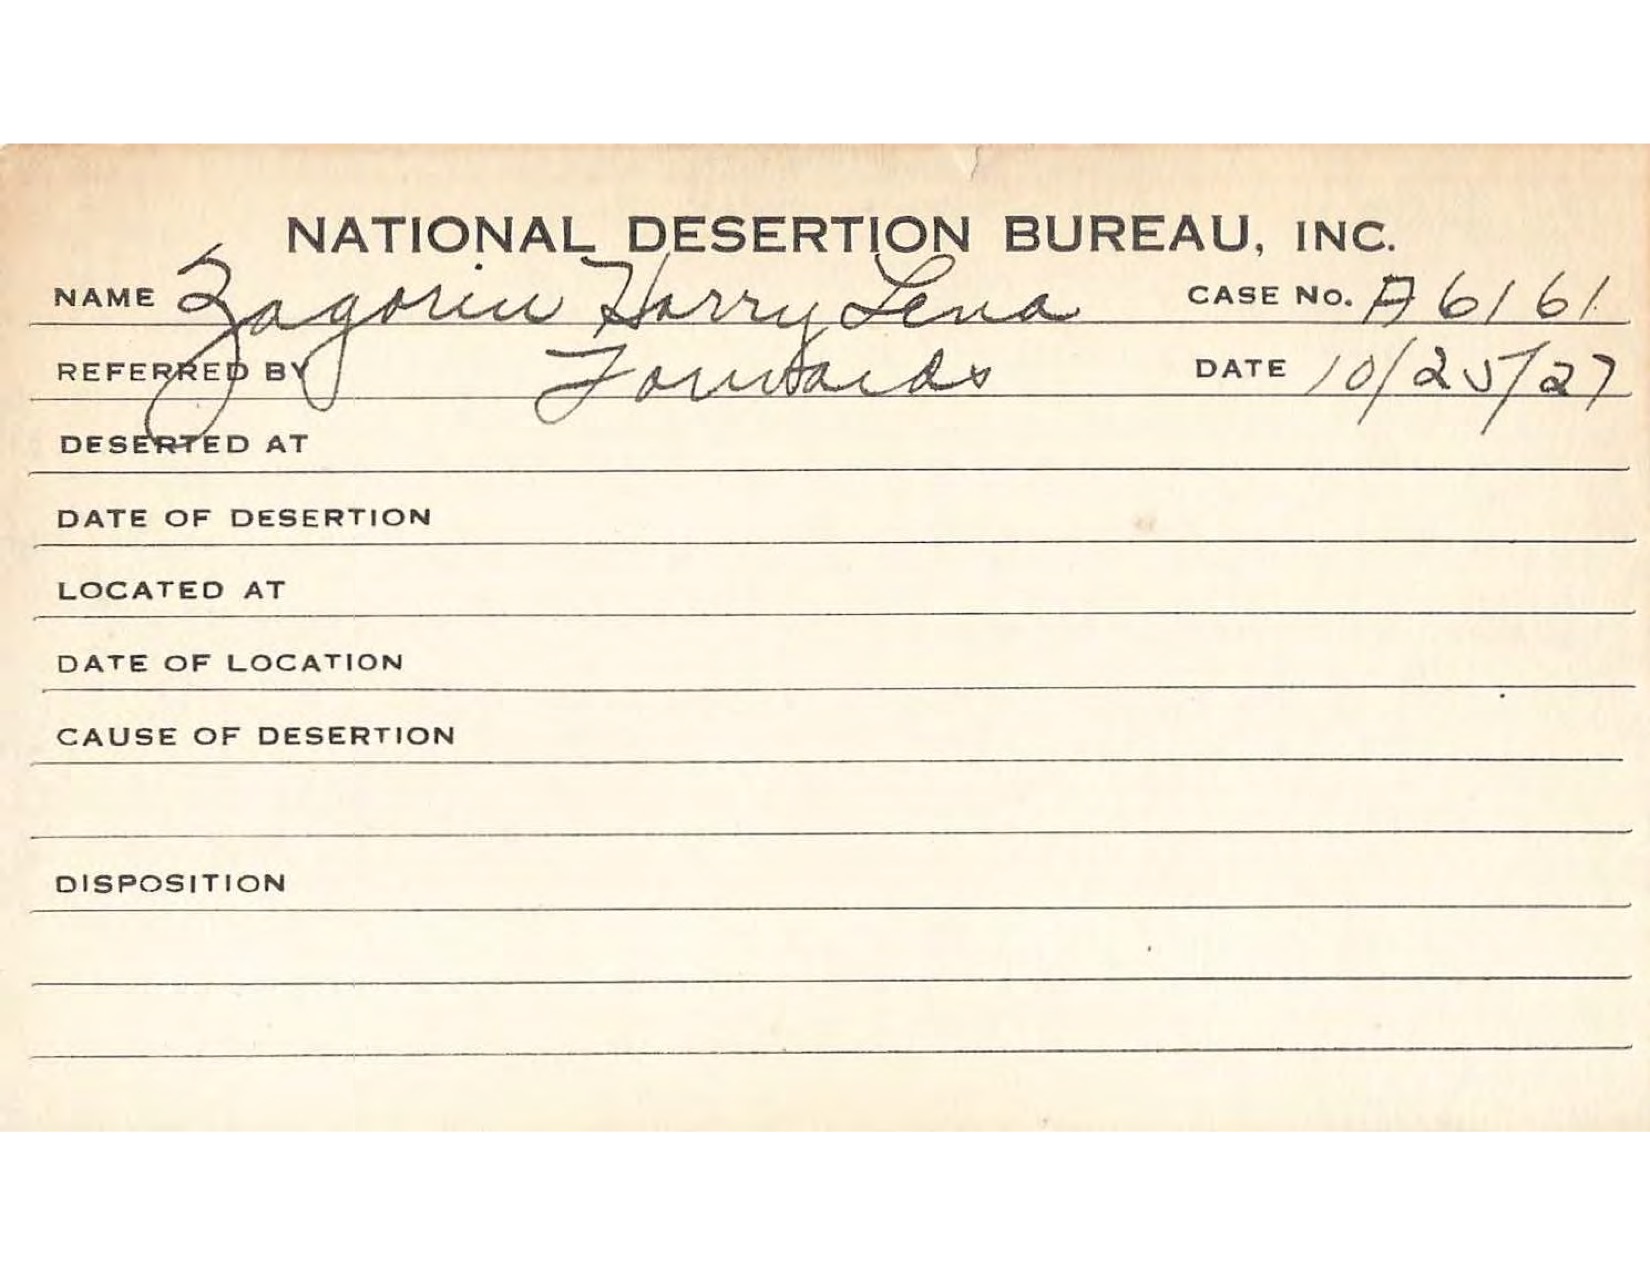 NATIONAL DESERTION BUREAU, INC.
NAME Zagorin Harry Lena CASE No. A6161
REFERRED BY Forwards DATE 10/25/27
DESERTED AT
DATE OF DESERTION
LOCATED AT
DATE OF LOCATION
CAUSE OF DESERTION
DISPOSITION